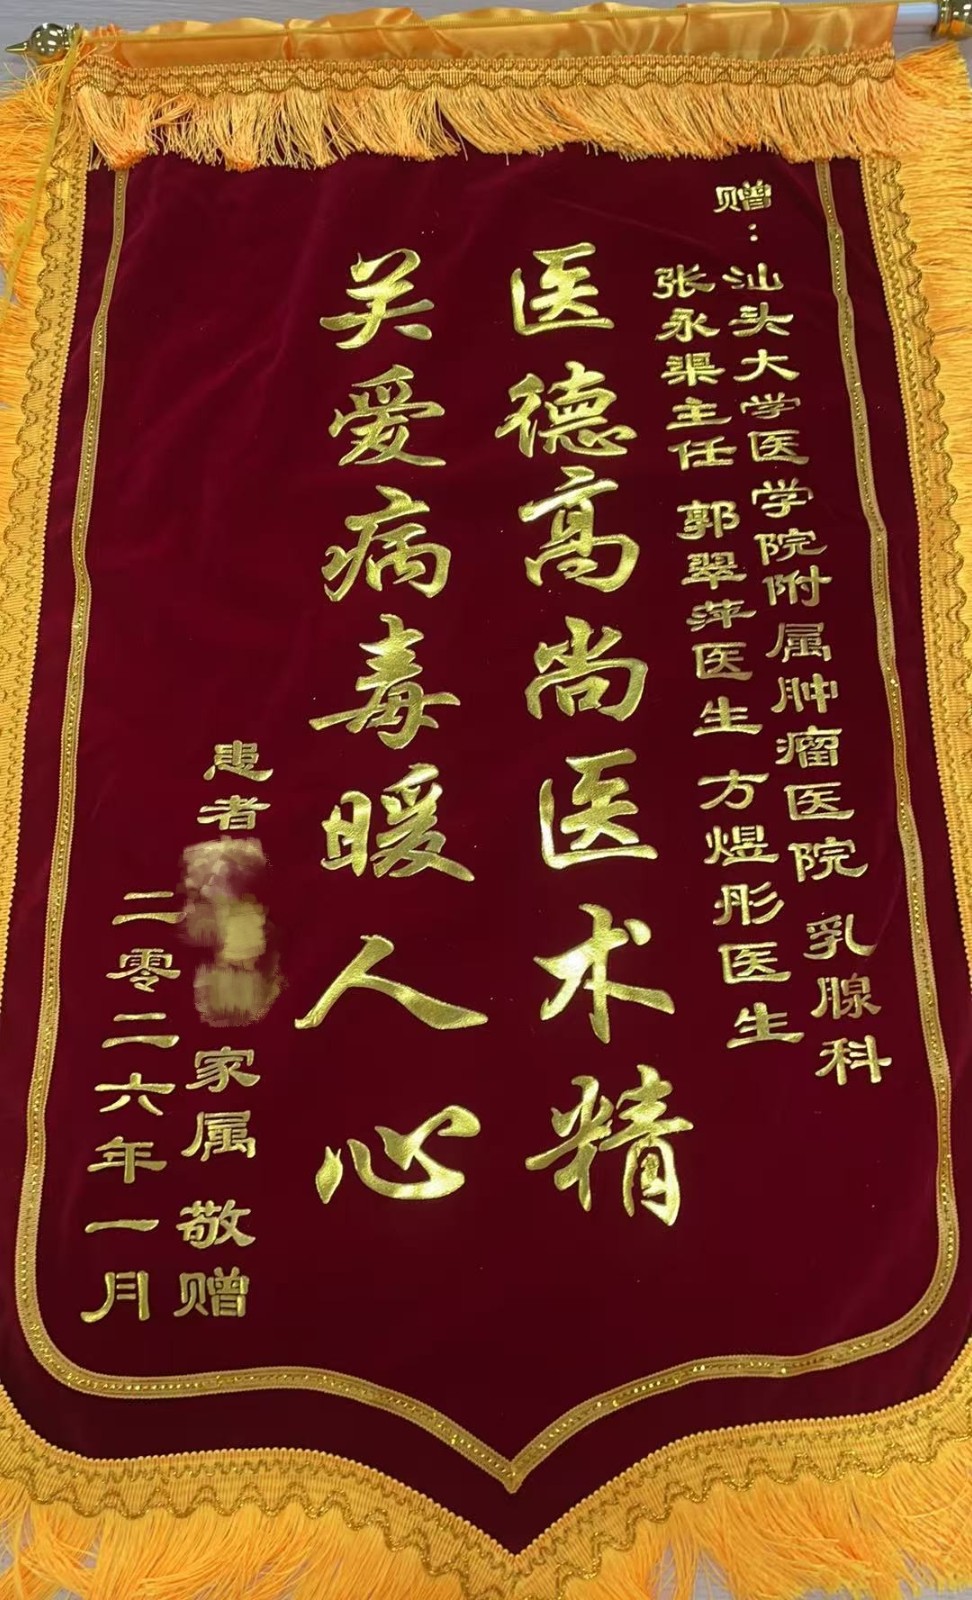 赠：
汕头大学医学院附属肿瘤医院 乳腺科
张永渠主任 郭翠萍医生 方煜彤医生
医德高尚医术精
关爱病毒暖人心
患者 家属 敬赠
二零二六年一月